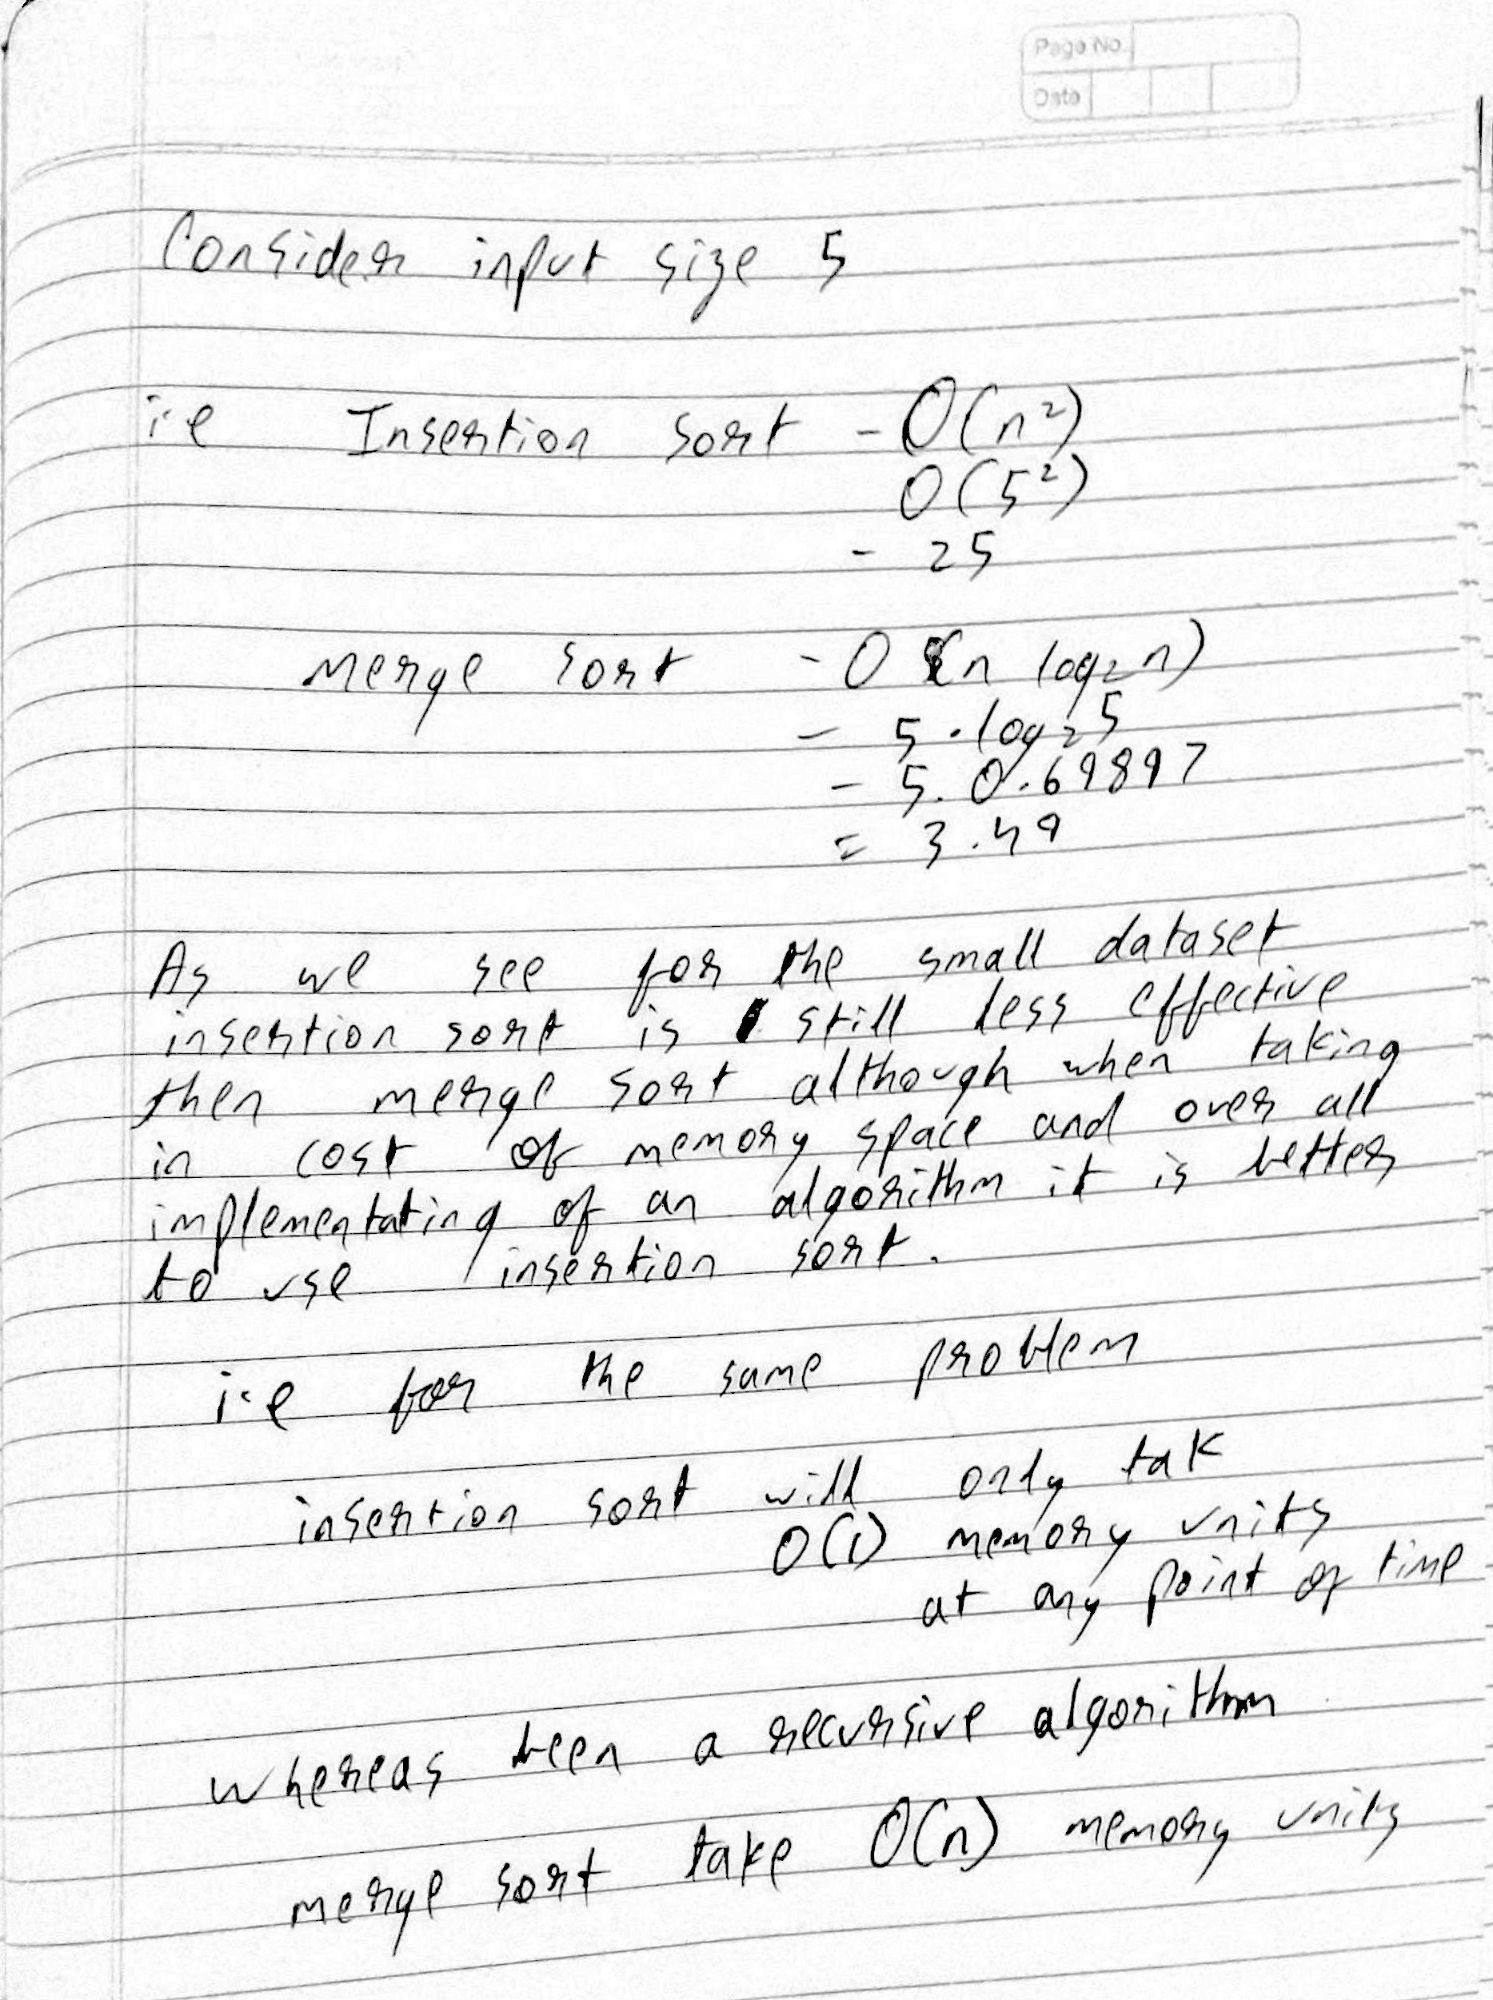 Page No.
Date
Consider input size 5
i.e Insertion sort - O(n²)
O(5²)
- 25
Merge sort - O (n log₂ n)
- 5 . log₂ 5
- 5. 0.69897
= 3.49
As we see for the small dataset
insertion sort is still less effective
then merge sort although when taking
in cost of memory space and over all
implementating of an algorithm it is better
to use insertion sort.
i.e for the same problem
insertion sort will only tak
O(1) memory units
at any point of time
whereas been a recursive algorithm
merge sort take O(n) memory units